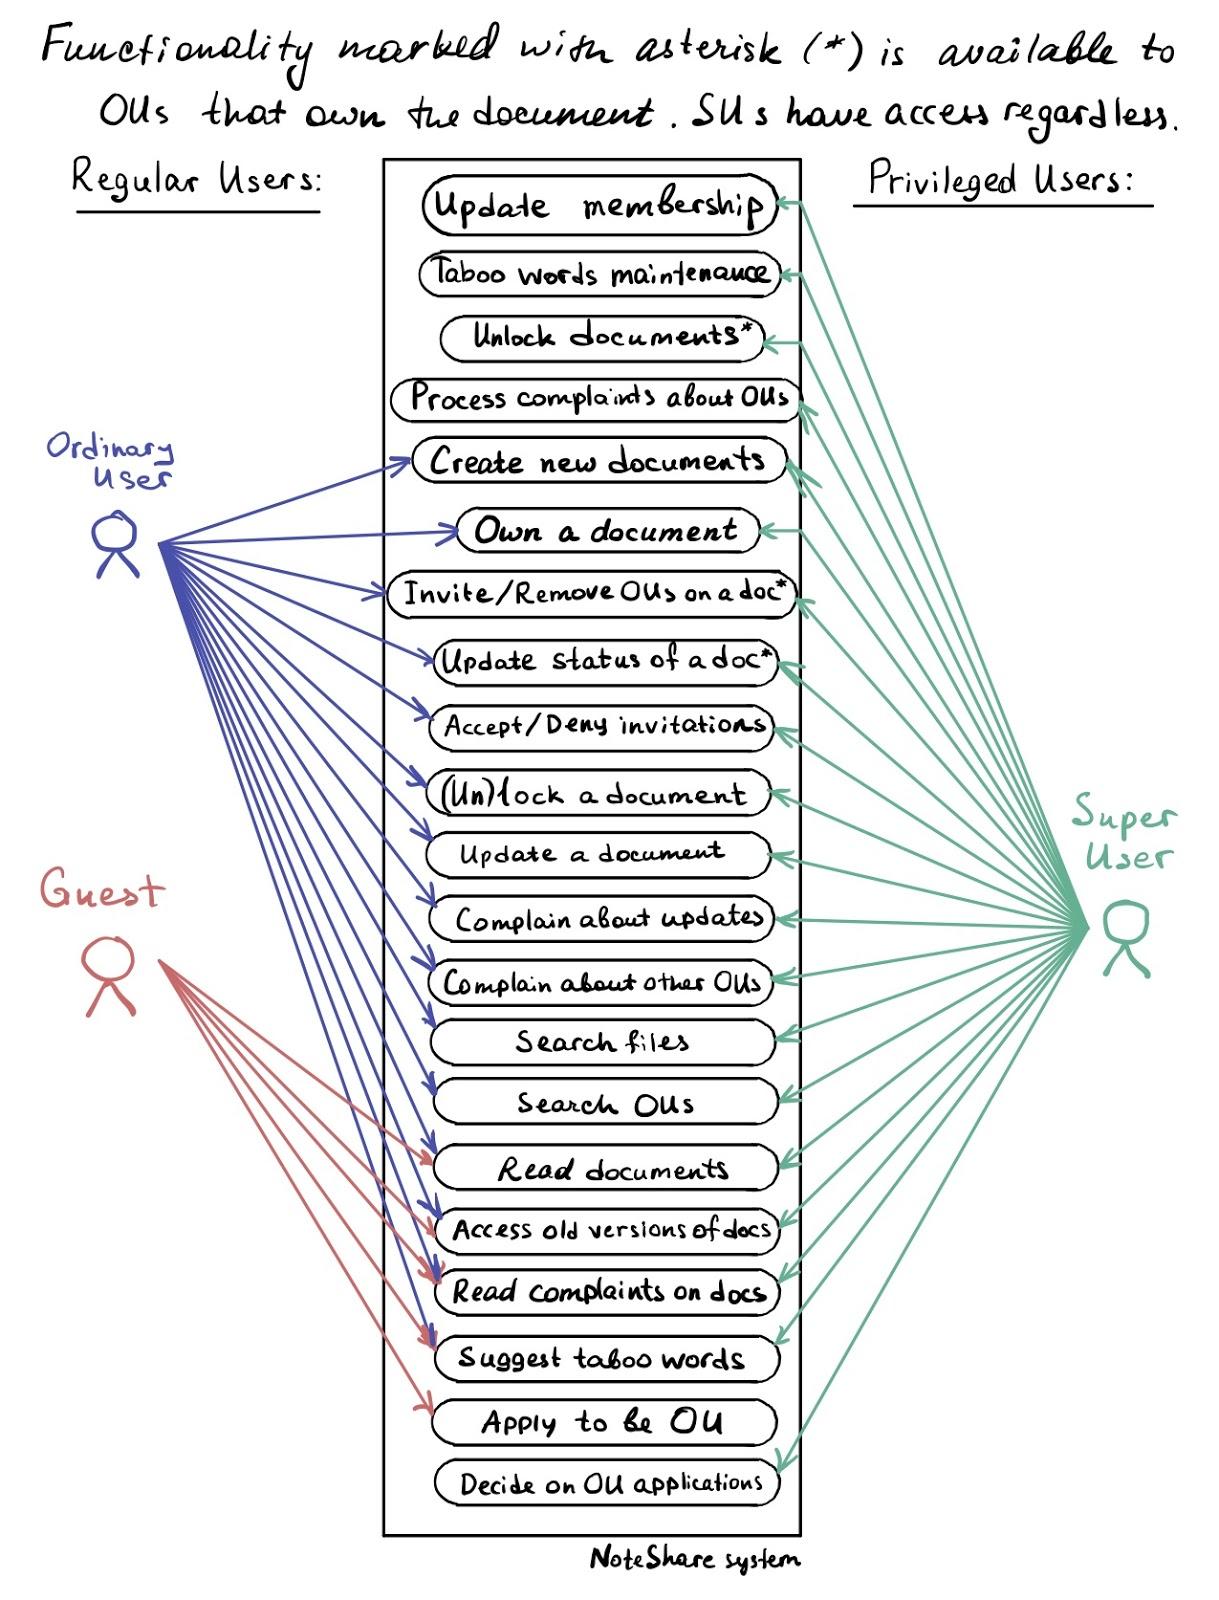 Functionality marked with asterisk (*) is available to
OUs that own the document. SUs have access regardless.
Regular Users:
Privileged Users:
Update membership
Taboo words maintenance
Unlock documents*
Process complaints about OUs
Ordinary
User
Create new documents
Own a document
Invite/Remove OUs on a doc*
Update status of a doc*
Accept/Deny invitations
(Un)lock a document
Super
User
Update a document
Guest
Complain about updates
Complain about other OUs
Search files
Search OUs
Read documents
Access old versions of docs
Read complaints on docs
Suggest taboo words
Apply to be OU
Decide on OU applications
NoteShare system